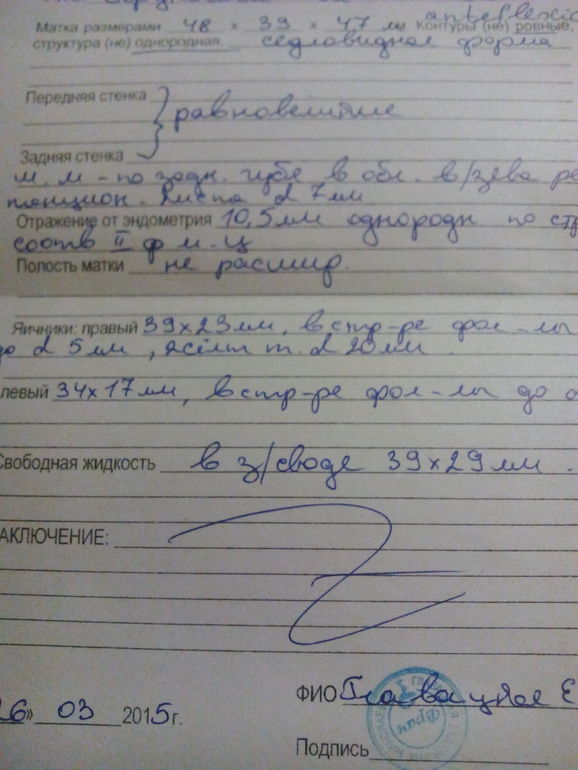 anteflexio
Матка размерами 48 × 39 × 47 мм. Контуры (не) ровные,
структура (не) однородная. седловидной форма
Передняя стенка
равновеликие
Задняя стенка
м. м - по задн. губе в обл. в/зева ре
тенцион. киста d 7мм
Отражение от эндометрия 10,5мм однородн по стр
соотв II ф м.ц
Полость матки не расшир.
Яичники: правый 39х23мм, в стр-ре фол-лы
до d 5мм, жёлт т. d 20мм.
левый 34х17мм, в стр-ре фол-лы до d
Свободная жидкость в з/своде 39х29мм.
АКЛЮЧЕНИЕ:
26» 03 2015г.
ФИО
Подпись